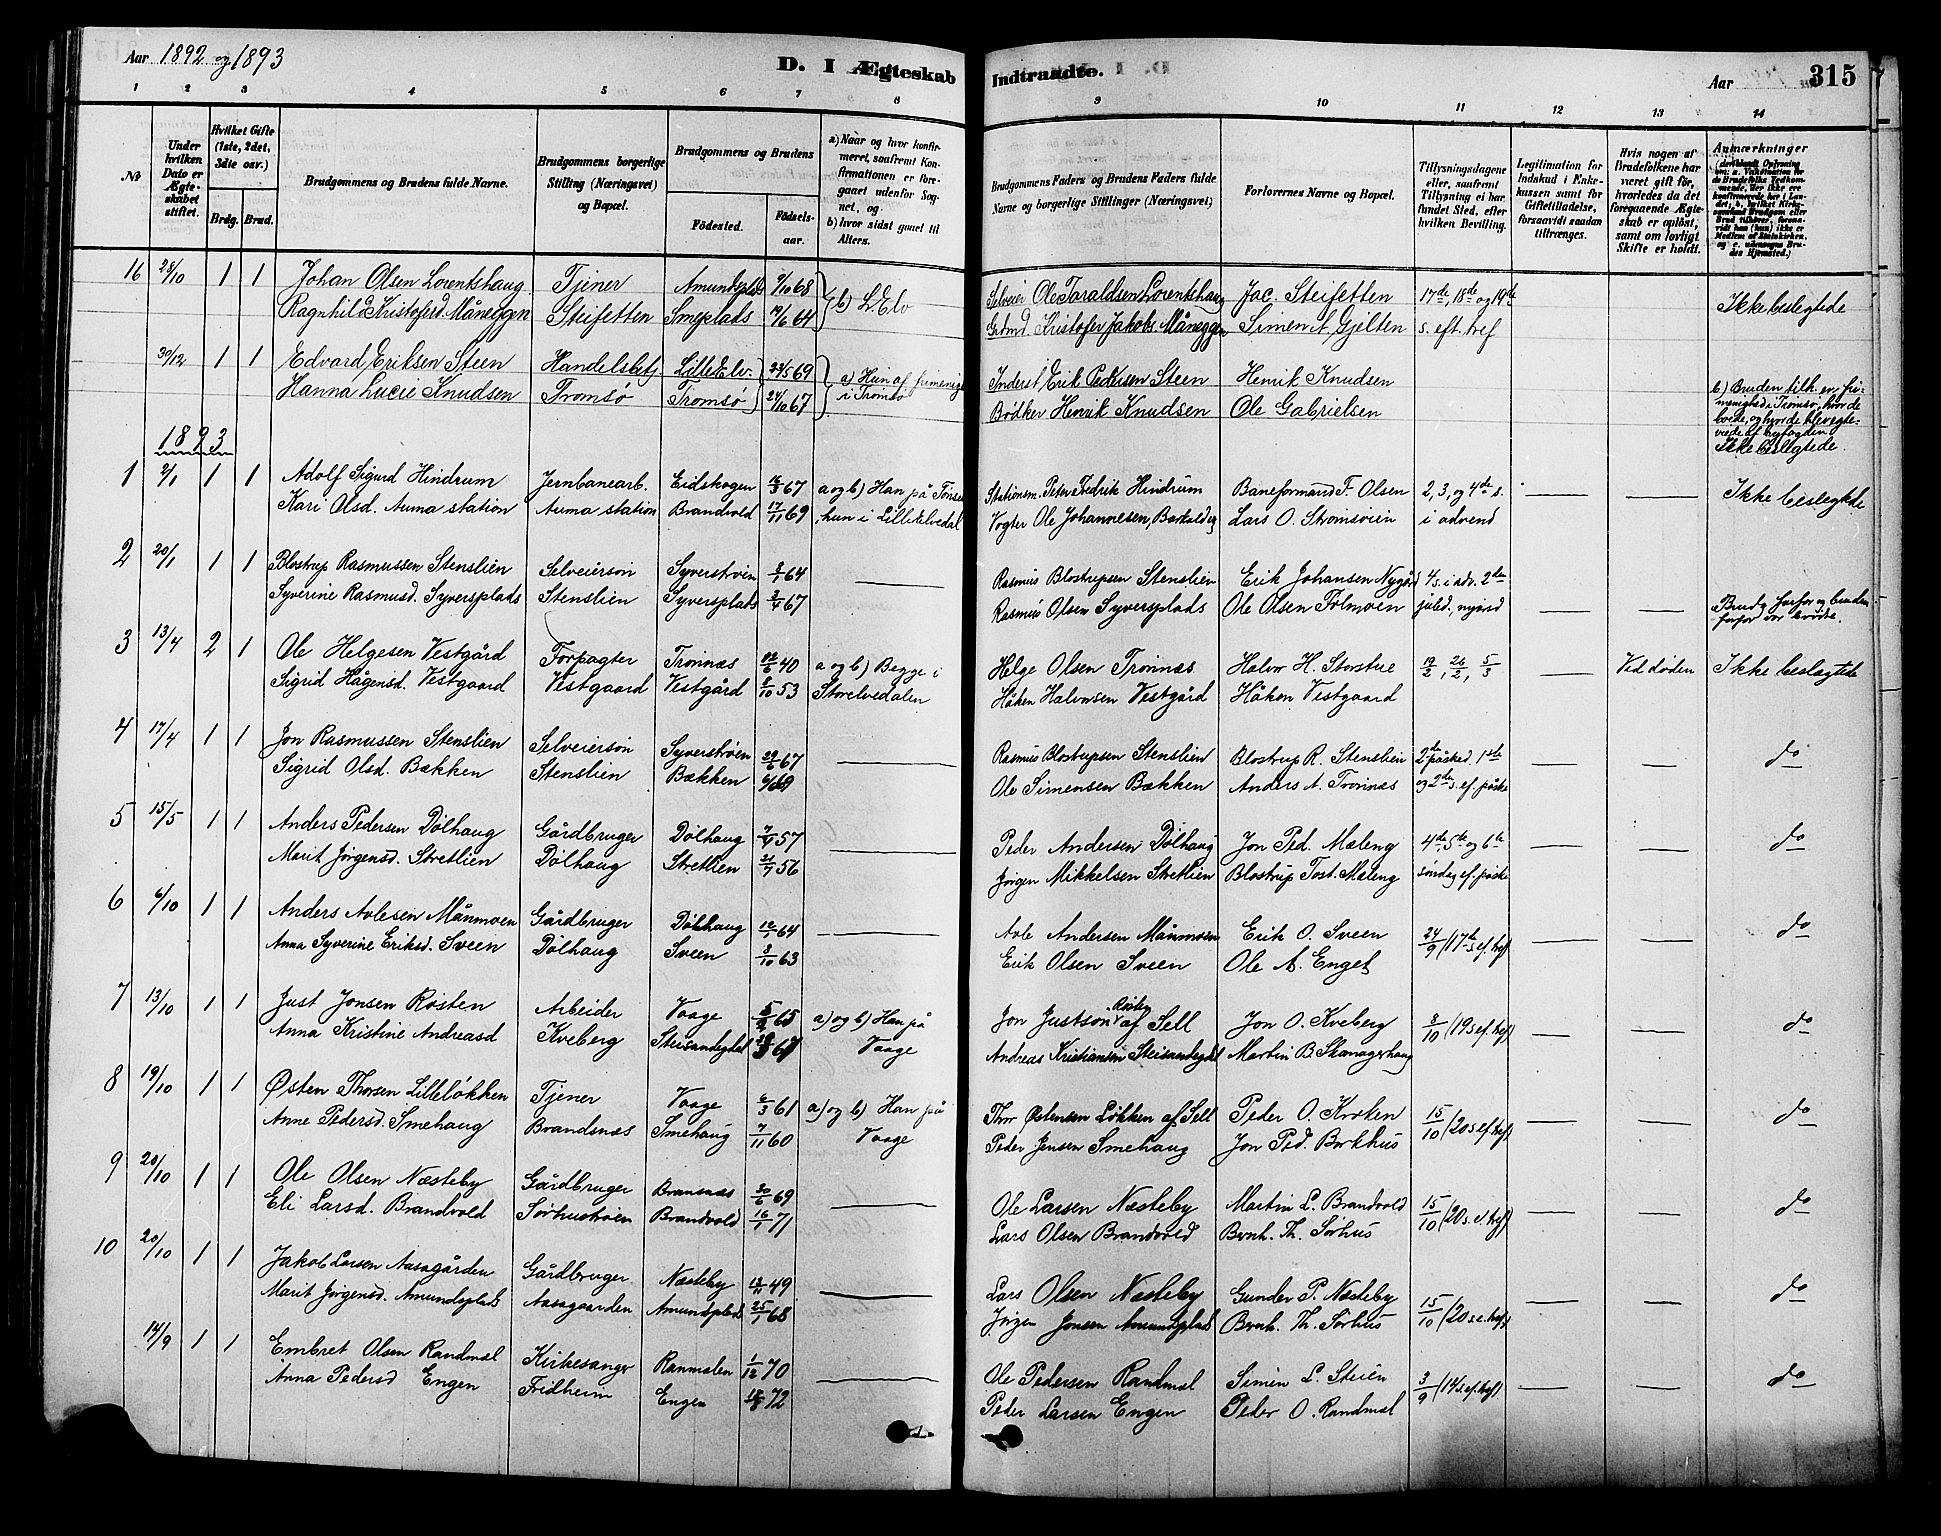 Aar 1892 og 1893
D. I Ægteskab Indtraadte.
Aar 315
1 2 3 4 5 6 7 8 9 10 11 12 13 14
No
Under hvilken Dato er Ægteskabet stiftet.
Hvilket Gifte (1ste, 2det, 3die osv.)
Brdg. Brud.
Brudgommens og Brudens fulde Navne.
Brudgommens borgerlige Stilling (Næringsvei) og Bopæl.
Brudgommens og Brudens
Födested. Födsels-aar.
a) Naar og hvor konfirmeret, saafremt Konfirmationen er foregaaet udenfor Sognet, og
b) hvor sidst gaaet til Alters.
Brudgommens Faders og Brudens Faders fulde Navne og borgerlige Stillinger (Næringsvei)
Forlovernes Navne og Bopæl.
Tillysningsdagene eller, saafremt Tillysning ei har fundet Sted, efter hvilken Bevilling.
Legitimation for Indskud i Enkekassen samt for Giftetilladelse, forsaavidt saadan tiltrænges.
Hvis nogen af Brudefolkene har været gift før, hvorledes da det foregaaende Ægteskab er opløst, samt om lovligt Skifte er holdt.
Anmærkninger
16 28/10 1 1 Johan Olsen Lorentshaug Tjener Amundsplads 9/10 68 b) L. Elv Selveier Ole Taraldsen Lorentshaug Jac. Steifetten 17de, 18de og 19de Ikke beslegtede
Ragnhild Kristofersd. Måneggen Steifetten Smeplads 14/6 64 Grdmd. Kristofer Jakobs. Måneggen Simen A. Gjelten s. eft. tref
30/12 1 1 Edvard Eriksen Steen Handelsbetj. LilleElv. 23/5 69 a) Hun af frimenigh. Inderst Erik Pedersen Steen Henrik Knudsen
Hanna Lucie Knudsen Tromsø Tromsø 24/10 67 i Tromsø Bødker Henrik Knudsen Ole Gabrielsen
b) Bruden tilh. en frimenighed i Tromsø, hvor de boede, og hvor de blev egteviede af byfogden
Ikke beslegtede.
1893
1 2/1 1 1 Adolf Sigurd Hindrum Jernbanearb. Eidskogen 12/3 67 a og b) Han på Tønset Stationsm. Peter Fredrik Hindrum Baneformand F. Olsen 2, 3, og 4de s. Ikke beslegtede
Kari Olsd. Auma station Auma station Brandvold 17/11 69 hun i LilleElvedal Vogter Ole Johannesen, Barkald eg Lars O. Strømsøien i advend
2 20/1 1 1 Blostrup Rasmussen Stenslien Selveiersøn Syverstrøen 8/1 64 Rasmus Blostrupsen Stenslien Erik Johansen Nygård 4 s. i adv. 2den
Syverine Rasmusd. Syversplads Stenslien Syversplads 3/4 67 Rasmus Olsen Syversplads Ole Olsen Tolmoen juled., nyård Brudg. farfar og brudens farfar var brødre.
3 13/4 2 1 Ole Helgesen Vestgård Forpagter Trønnæs 12/6 40 a og b) Begge i Helge Olsen Trønnæs Halvor H. Storstue 19/2, 26/2, 5/3 Ved døden Ikke beslagtede
Sigrid Hågensd. Vestgaard Vestgaard Vestgård 8/10 53 Storelvedalen Håken Halvorsen Vestgård Håkon Vestgaard
4 17/4 1 1 Jon Rasmussen Stenslien Selveiersøn Syverstrøen 29/6 67 Rasmus Blostrupsen Stenslien Blostrup R. Stenslien 2den påsked. 1ste do
Sigrid Olsd. Bækken Stenslien Bækken 69 Ole Simensen Bækken Anders A. Trønnæs og 2den s. ef. påske
5 15/5 1 1 Anders Pedersen Dølhaug Gårdbruger Dølhaug 7/4 57 Peder Andersen Dølhaug Jon Ped. Mæleng 4de, 5te og 6te do
Marit Jørgensd. Stretlien Dølhaug Stretlien 21/7 56 Jørgen Mikkelsen Stretlien Blostrup Tost. Mæleng søndag ef. påske
6 6/10 1 1 Anders Avlesen Månmoen Gårdbruger Dølhaug 12/1 64 Avle Andersen Månmoen Erik O. Sveen 24/9 (17de s. ef. tref) do
Anna Syverine Eriksd. Sveen Dølhaug Sveen 3/10 63 Erik Olsen Sveen Ole A. Enget
7 13/10 1 1 Just Jonsen Røsten Arbeider Vaage 5/2 65 a) og b) Han på Jon Justson Røsten af Sell Jon O. Kveberg 8/10 (19 s ef. tref) do
Anna Kristine Andreasd Kveberg Steisandegdal 67 Vaage Andreas Kristiansen Steisandegdal Martin B. Skanagerhaug
8 19/10 1 1 Østen Thorsen Lilleløkken Tjener Vaage 6/3 61 a) og b) Han på Thor Østensen Løkken af Sell Peder O. Kroken 15/10 (20 s ef. tref) do
Anne Pedersd. Smehaug Brandsnæs Smehaug 7/11 60 Vaage Peder Jensen Smehaug Jon Ped. Borkhus
9 20/10 1 1 Ole Olsen Næsteby Gårdbruger Bransnæs 30/6 69 Ole Larsen Næsteby Martin L. Brandvold 15/10 (20 s. e. tref) do
Eli Larsd. Brandvold Sørhustrøen Brandvold 16/1 71 Lars Olsen Brandvold Brnh. Th. Sørhus
10 20/10 1 1 Jakob Larsen Aasagården Gårdbruger Næsteby 13/11 49 Lars Olsen Næsteby Gunder P. Næsteby 15/10 (20 s. e. tref) do
Marit Jørgensd. Amundsplads Aasagaarden Amundsplads 25/1 68 Jørgen Jonsen Amundsplads Brnh. Th. Sørhus
14/9 1 1 Embret Olsen Randmæl Kirkesanger Ranmælen 1/12 70 Ole Pedersen Randmæl Simen L. Steien 3/9 (14 s. ef. tref) do
Anna Pedersd Engen Fridheim Engen 72 Peder Larsen Engen Peder O. Randmæl